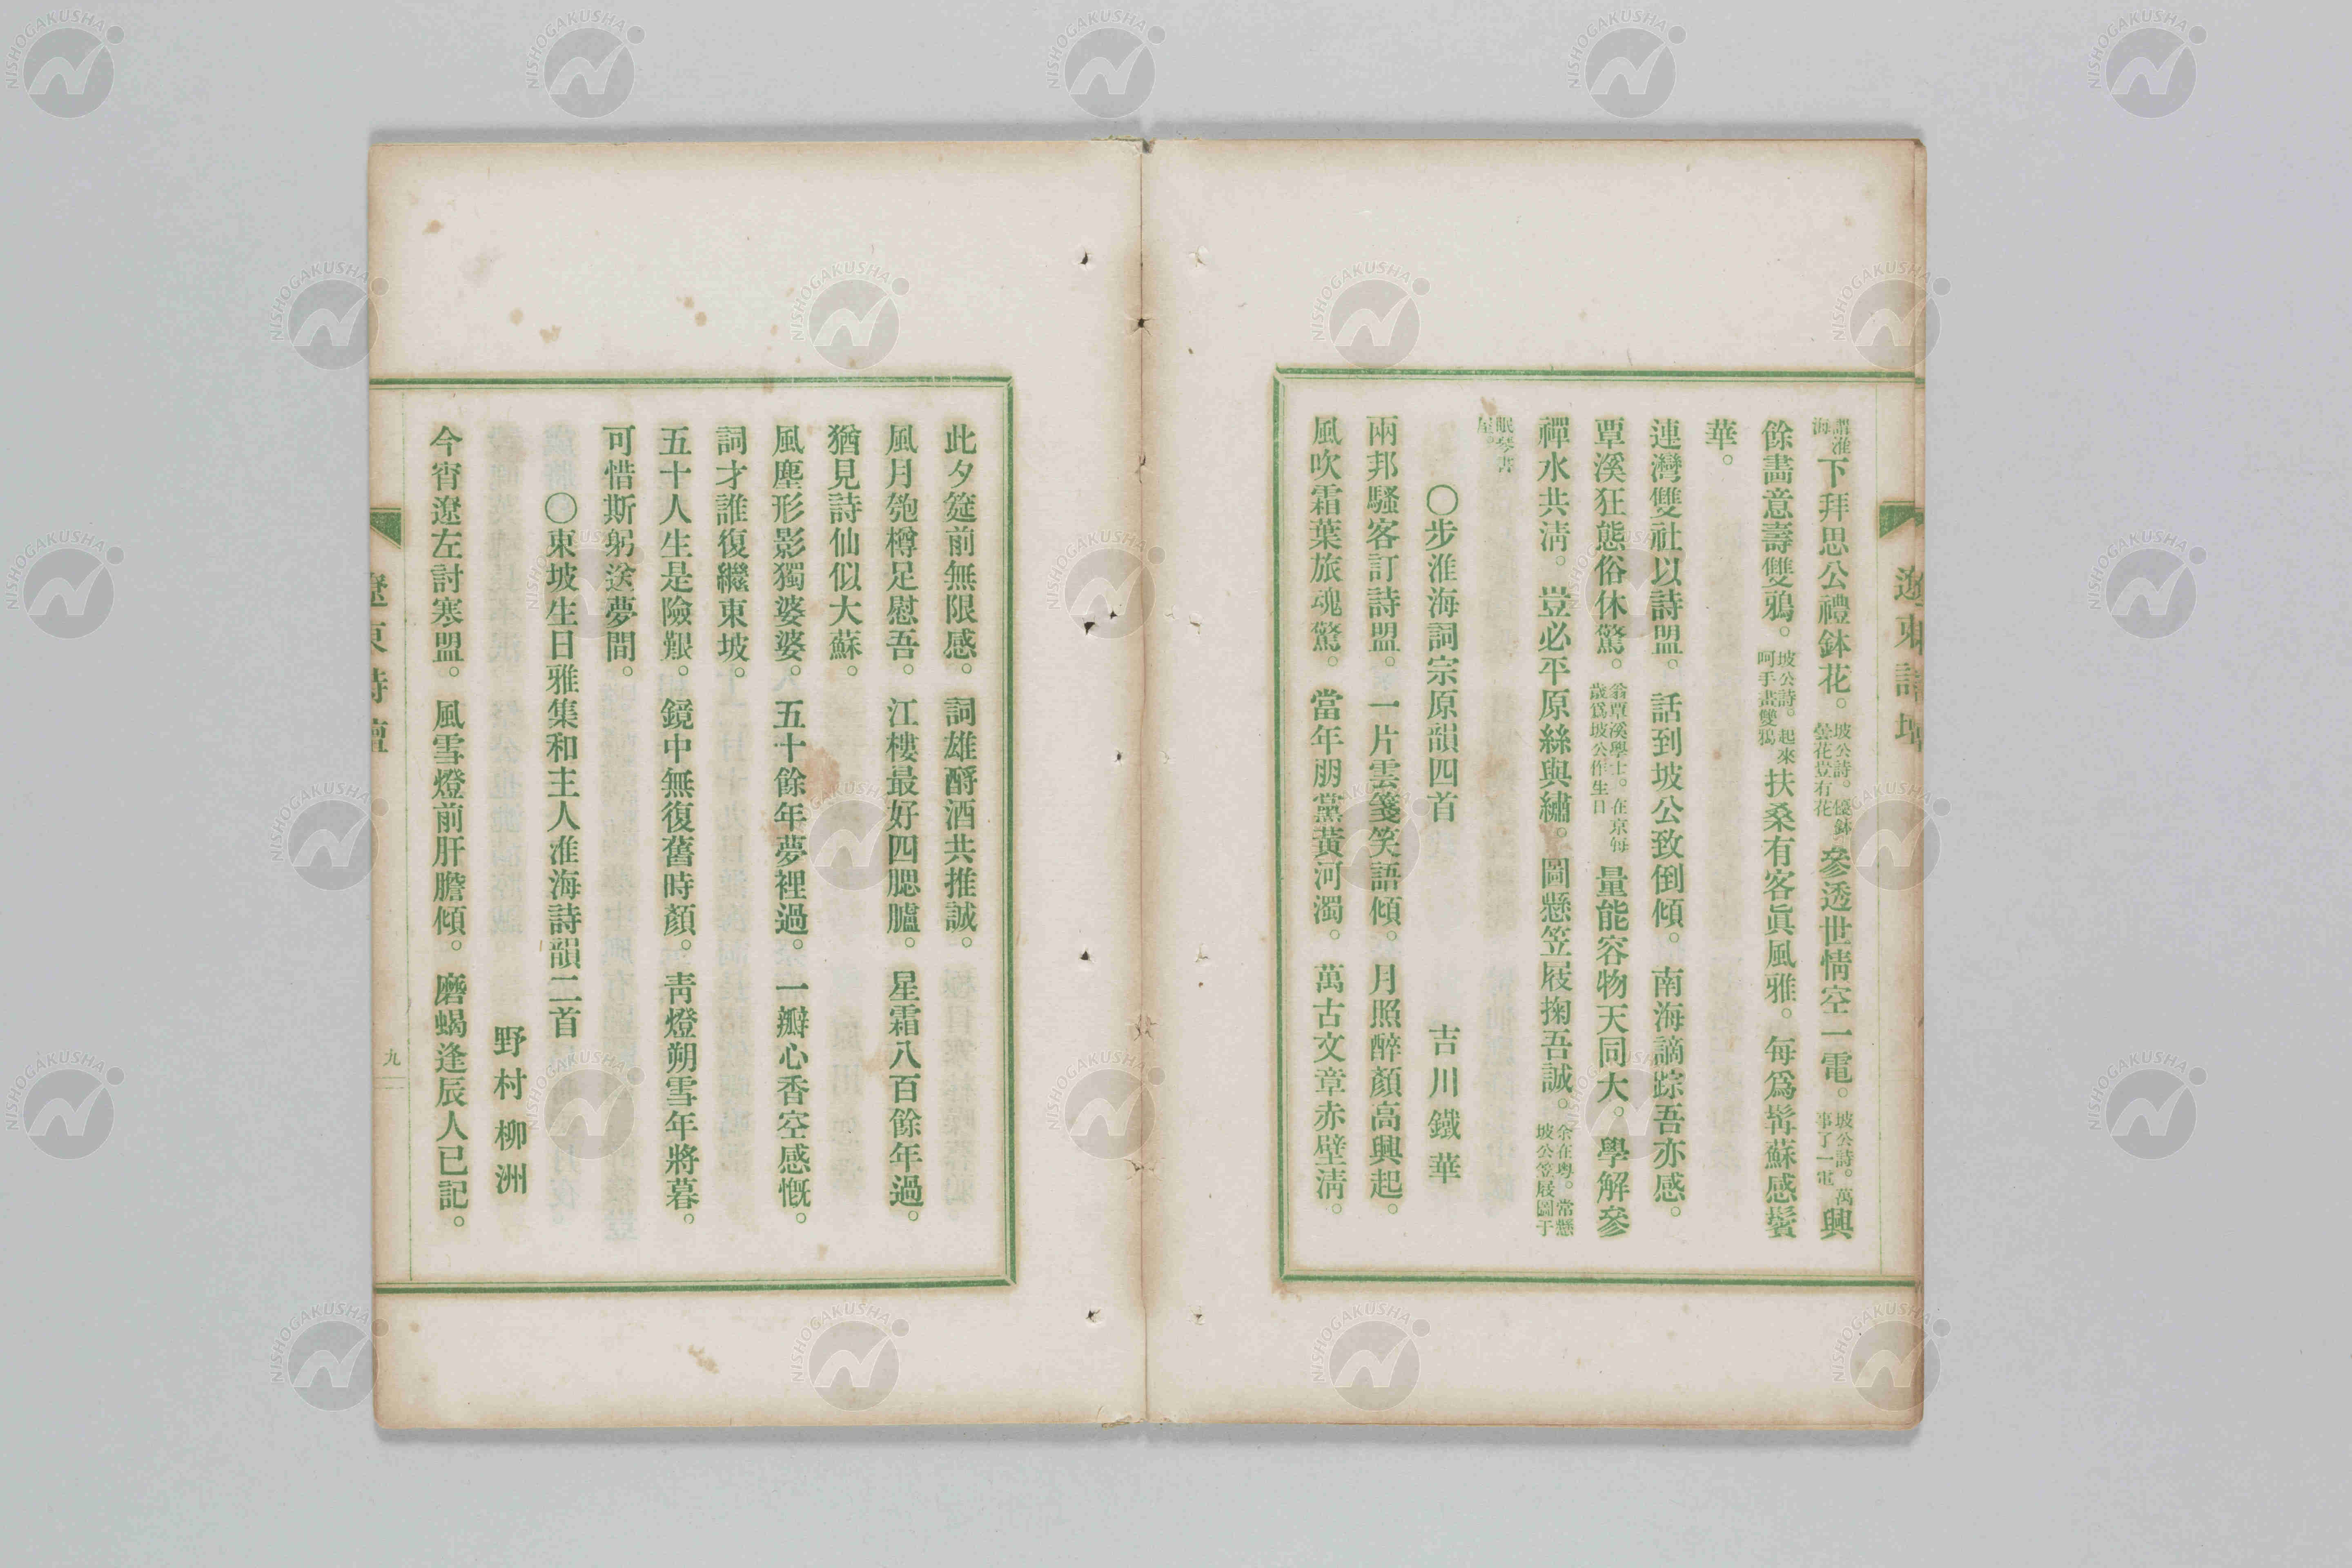 遼東詩壇
謂淮海下拜思公禮鉢花。坡公詩。憶鉢曇花豈有花參透世情空一電。坡公詩。萬事了一電興
餘畵意壽雙鴉。坡公詩。起來呵手畫雙鴉扶桑有客眞風雅。每爲髯蘇感鬢
華。
連灣雙社以詩盟。話到坡公致倒傾。南海謫踪吾亦感。
覃溪狂態俗休驚。翁覃溪學士。在京每歲爲坡公作生日量能容物天同大。學解參
禪水共淸。豈必平原絲與繡。圖懸笠屐掬吾誠。余在粤。常懸坡公笠屐圖于
眠琴書屋。
〇步淮海詞宗原韻四首
吉川鐵華
兩邦騷客訂詩盟。一片雲箋笑語傾。月照醉顏高興起。
風吹霜葉旅魂驚。當年朋黨黃河濁。萬古文章赤壁淸。
此夕筵前無限感。詞雄酹酒共推誠。
風月匏樽足慰吾。江樓最好四腮臚。星霜八百餘年過。
猶見詩仙似大蘇。
風塵形影獨婆娑。五十餘年夢裡過。一瓣心香空感慨。
詞才誰復繼東坡。
五十人生是險艱。鏡中無復舊時顏。靑燈朔雪年將暮。
可惜斯躬送夢間。
〇東坡生日雅集和主人淮海詩韻二首
野村柳洲
今宵遼左討寒盟。風雪燈前肝膽傾。磨蝎逢辰人已記。
遼東詩壇
九
NISHOGAKUSHA